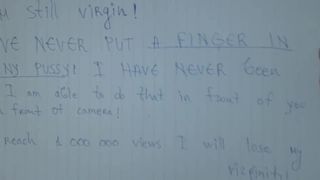 still virgin!
VE NEVER PUT A FINGER IN
NY PUSSY! I HAVE NEVER been
I am able to do that in front of you
front of camera!
reach 1 000 000 views I will lose my
virginity!